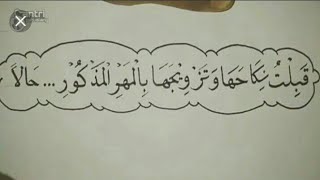 قَبِلْتُ نِكَاحَهَا وَتَزْوِيْجَهَا بِالْمَهْرِ الْمَذْكُوْرِ... حَالًا